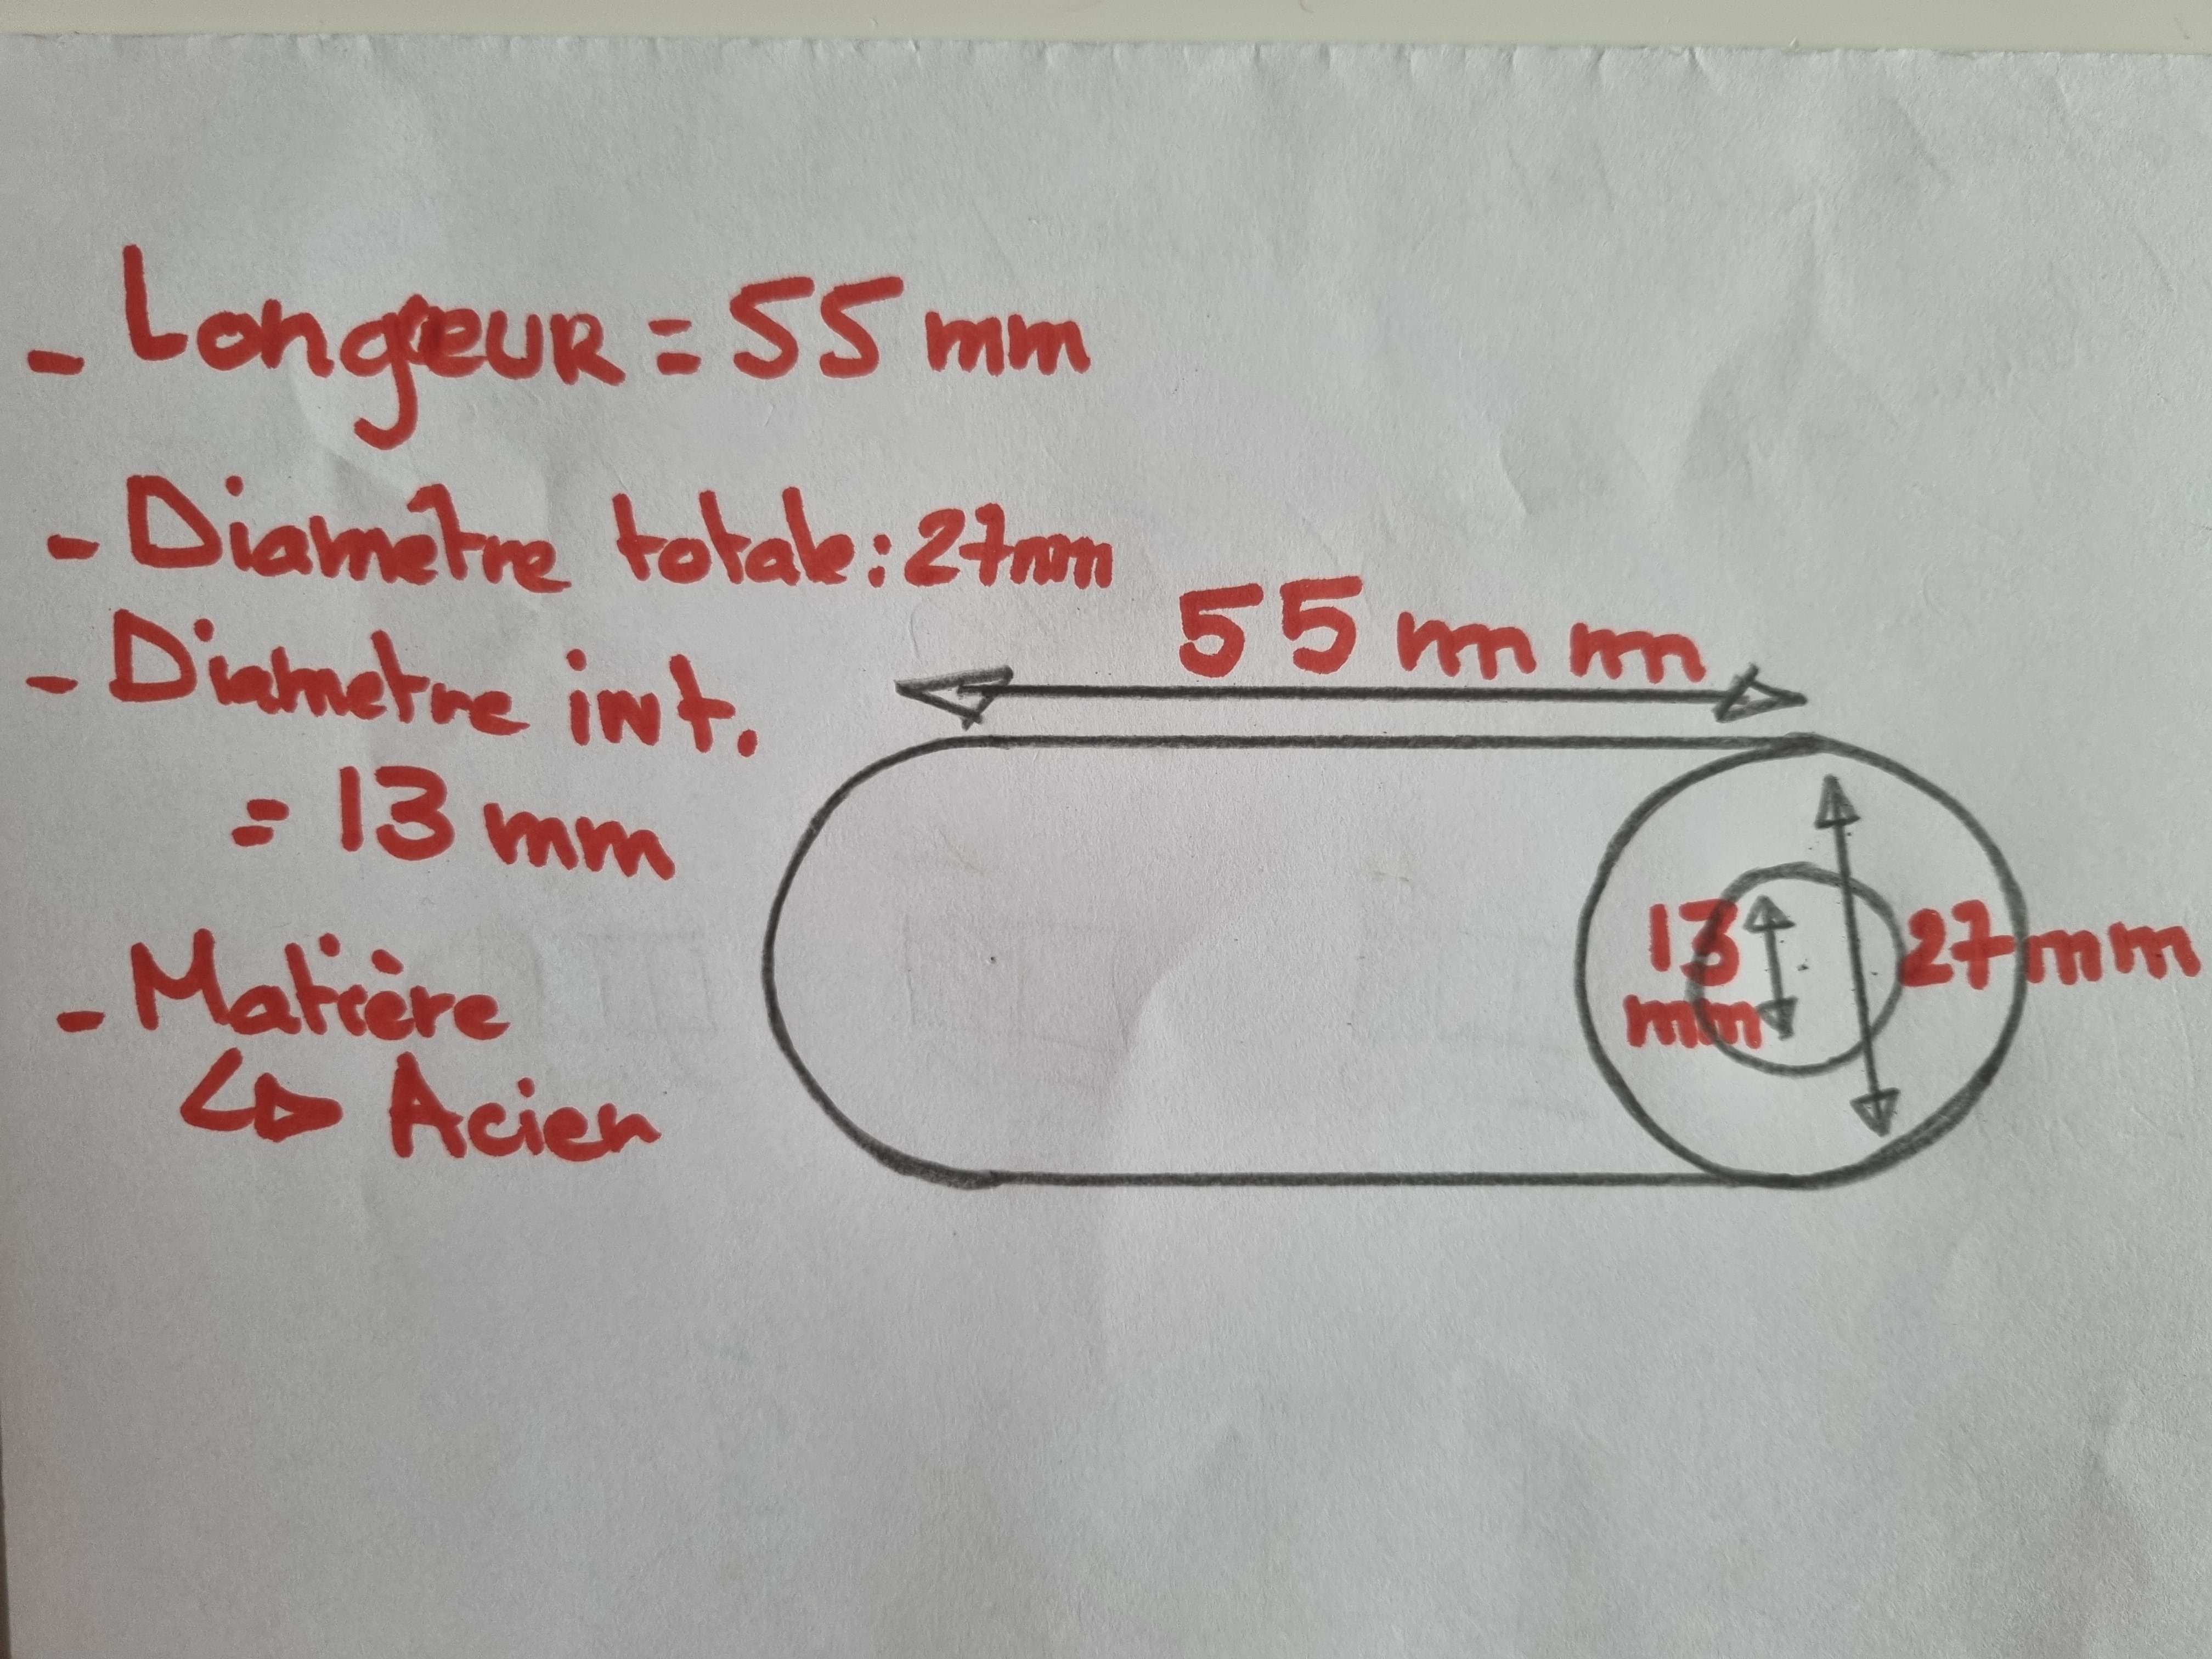 - Longeur = 55 mm
- Diamêtre totale : 27mm
- Diametre int.
= 13 mm
- Matière
↳ Acier
55 mm
13
mm
27mm